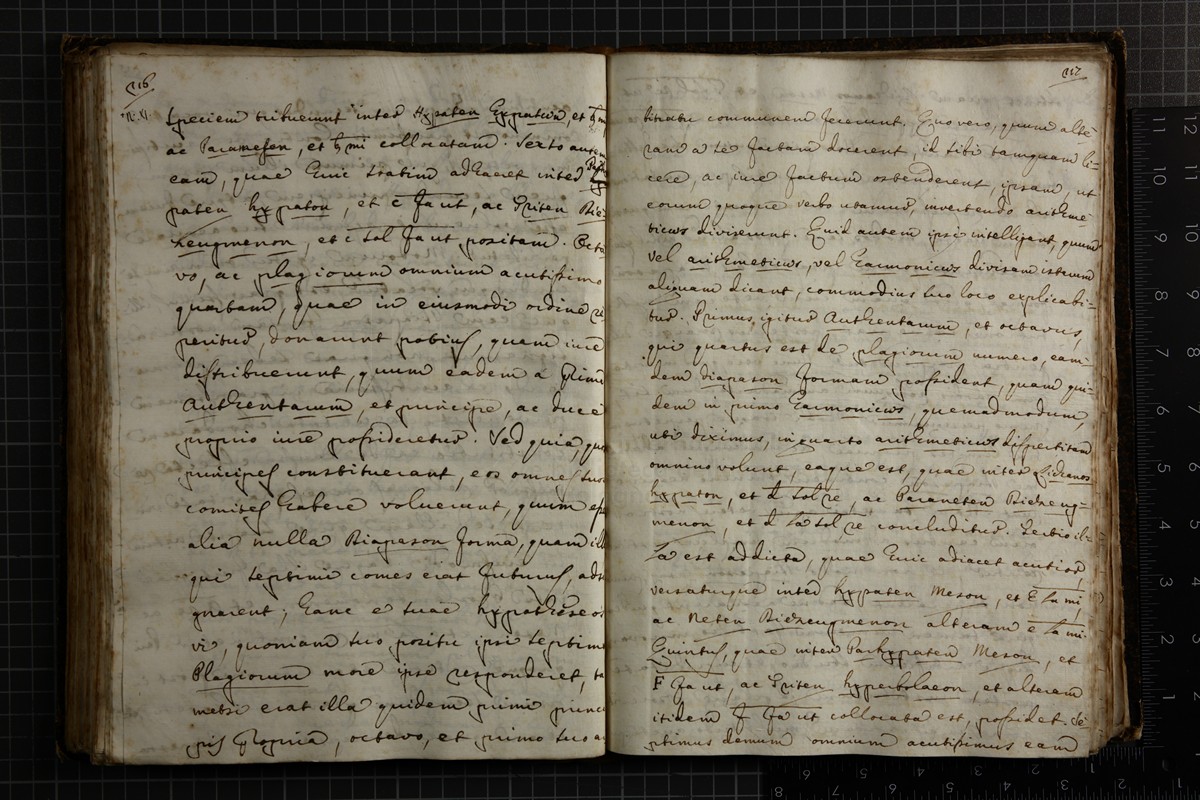 216
N. XI.
speciem tribuerunt inter Hypaten Hypaton, et ♮ mi
ac Paramesen, et ♮ mi collocatam. Sexto autem
eam, quae huic statim adhaeret inter
paten hypaton, et C fa ut, ac Triten Die-
zeugmenon, et c sol fa ut positam. Octa-
vo, ac plagiorum omnium acutissimo
quartam, quae in eiusmodi ordine re-
peritur, donarunt potius, quam iure
distribuerunt, quum eadem a Primo
Authentarum, et principe, ac duce
proprio iure possideretur. Sed quia, quos
principes constituerant, eos omnes suos
comites habere voluerunt, quum
alia nulla Diapason forma, quam
qui septimi comes erat futurus,
gnarent; hanc e suae hypathese
vi, quoniam suo positu ipsi septimo
Plagiorum more ipse responderet, ta-
metsi erat illa quidem primi princi-
pis propria, octavo, et primo suo
217
bitratu communem fecerunt. Quo vero, quum alte-
ram a se factam docerent, id sibi tamquam li-
cere, ac iure factum ostenderent, ipsam, ut
eorum quoque verbo utamur, invertendo arithme-
ticws diviserunt. Quid autem ipsi intelligant, quum
vel arithmeticws, vel harmonicws divisam istarum
aliquam dicant, commodius suo loco explicabi-
tur. Primus igitur Authentarum, et octavus,
qui quartus est de plagiorum numero, eam-
dem diapason formam possident, quam qui-
dem in primo harmonicws, quemadmodum,
uti diximus, in quarto arithmeticws dispertitam
omnino volunt, eaque est, quae inter Lichanos
hypaton, et d sol re, ac Paraneten Diezeug-
menon, et d la sol re concluditur. Tertio il-
la est addicta, quae huic adiacet acutior,
versaturque inter hypaten Meson, et E la mi,
ac Neten Diezeugmenon alteram e la mi.
Quintus, quae inter Parhypaten Meson, et
F fa ut, ac Triten hyperbolaeon, et alteram
itidem f fa ut collocata est, possidet. Se-
ptimus demum omnium acutissimus eam